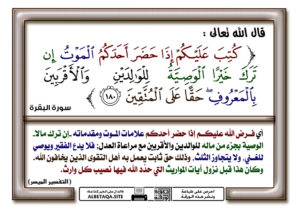 قال الله تعالى :
﴿ كُتِبَ عَلَيْكُمْ إِذَا حَضَرَ أَحَدَكُمُ الْمَوْتُ إِن
تَرَكَ خَيْرًا الْوَصِيَّةُ لِلْوَالِدَيْنِ وَالْأَقْرَبِينَ
بِالْمَعْرُوفِ ۖ حَقًّا عَلَى الْمُتَّقِينَ ١٨٠ ﴾
سورة البقرة
أي فـرض الله عليكـم إذا حضر أحدكم علامات الموت ومقدماته ـ إن ترك مالا ـ
الوصية بجزء من ماله للوالدين والأقربين مع مراعاة العدل؛ فلا يدع الفقير ويوصي
للغني، ولا يتجاوز الثلث، وذلك حق ثابت يعمل به أهل التقوى الذين يخافون الله.
وكان هذا قبل نزول آيات المواريث التي حدد الله فيها نصيب كل وارث.
(التفسير الميسر)
ALBETAQA.SITE
احرص على طباعة
ونشر هذه الورقة